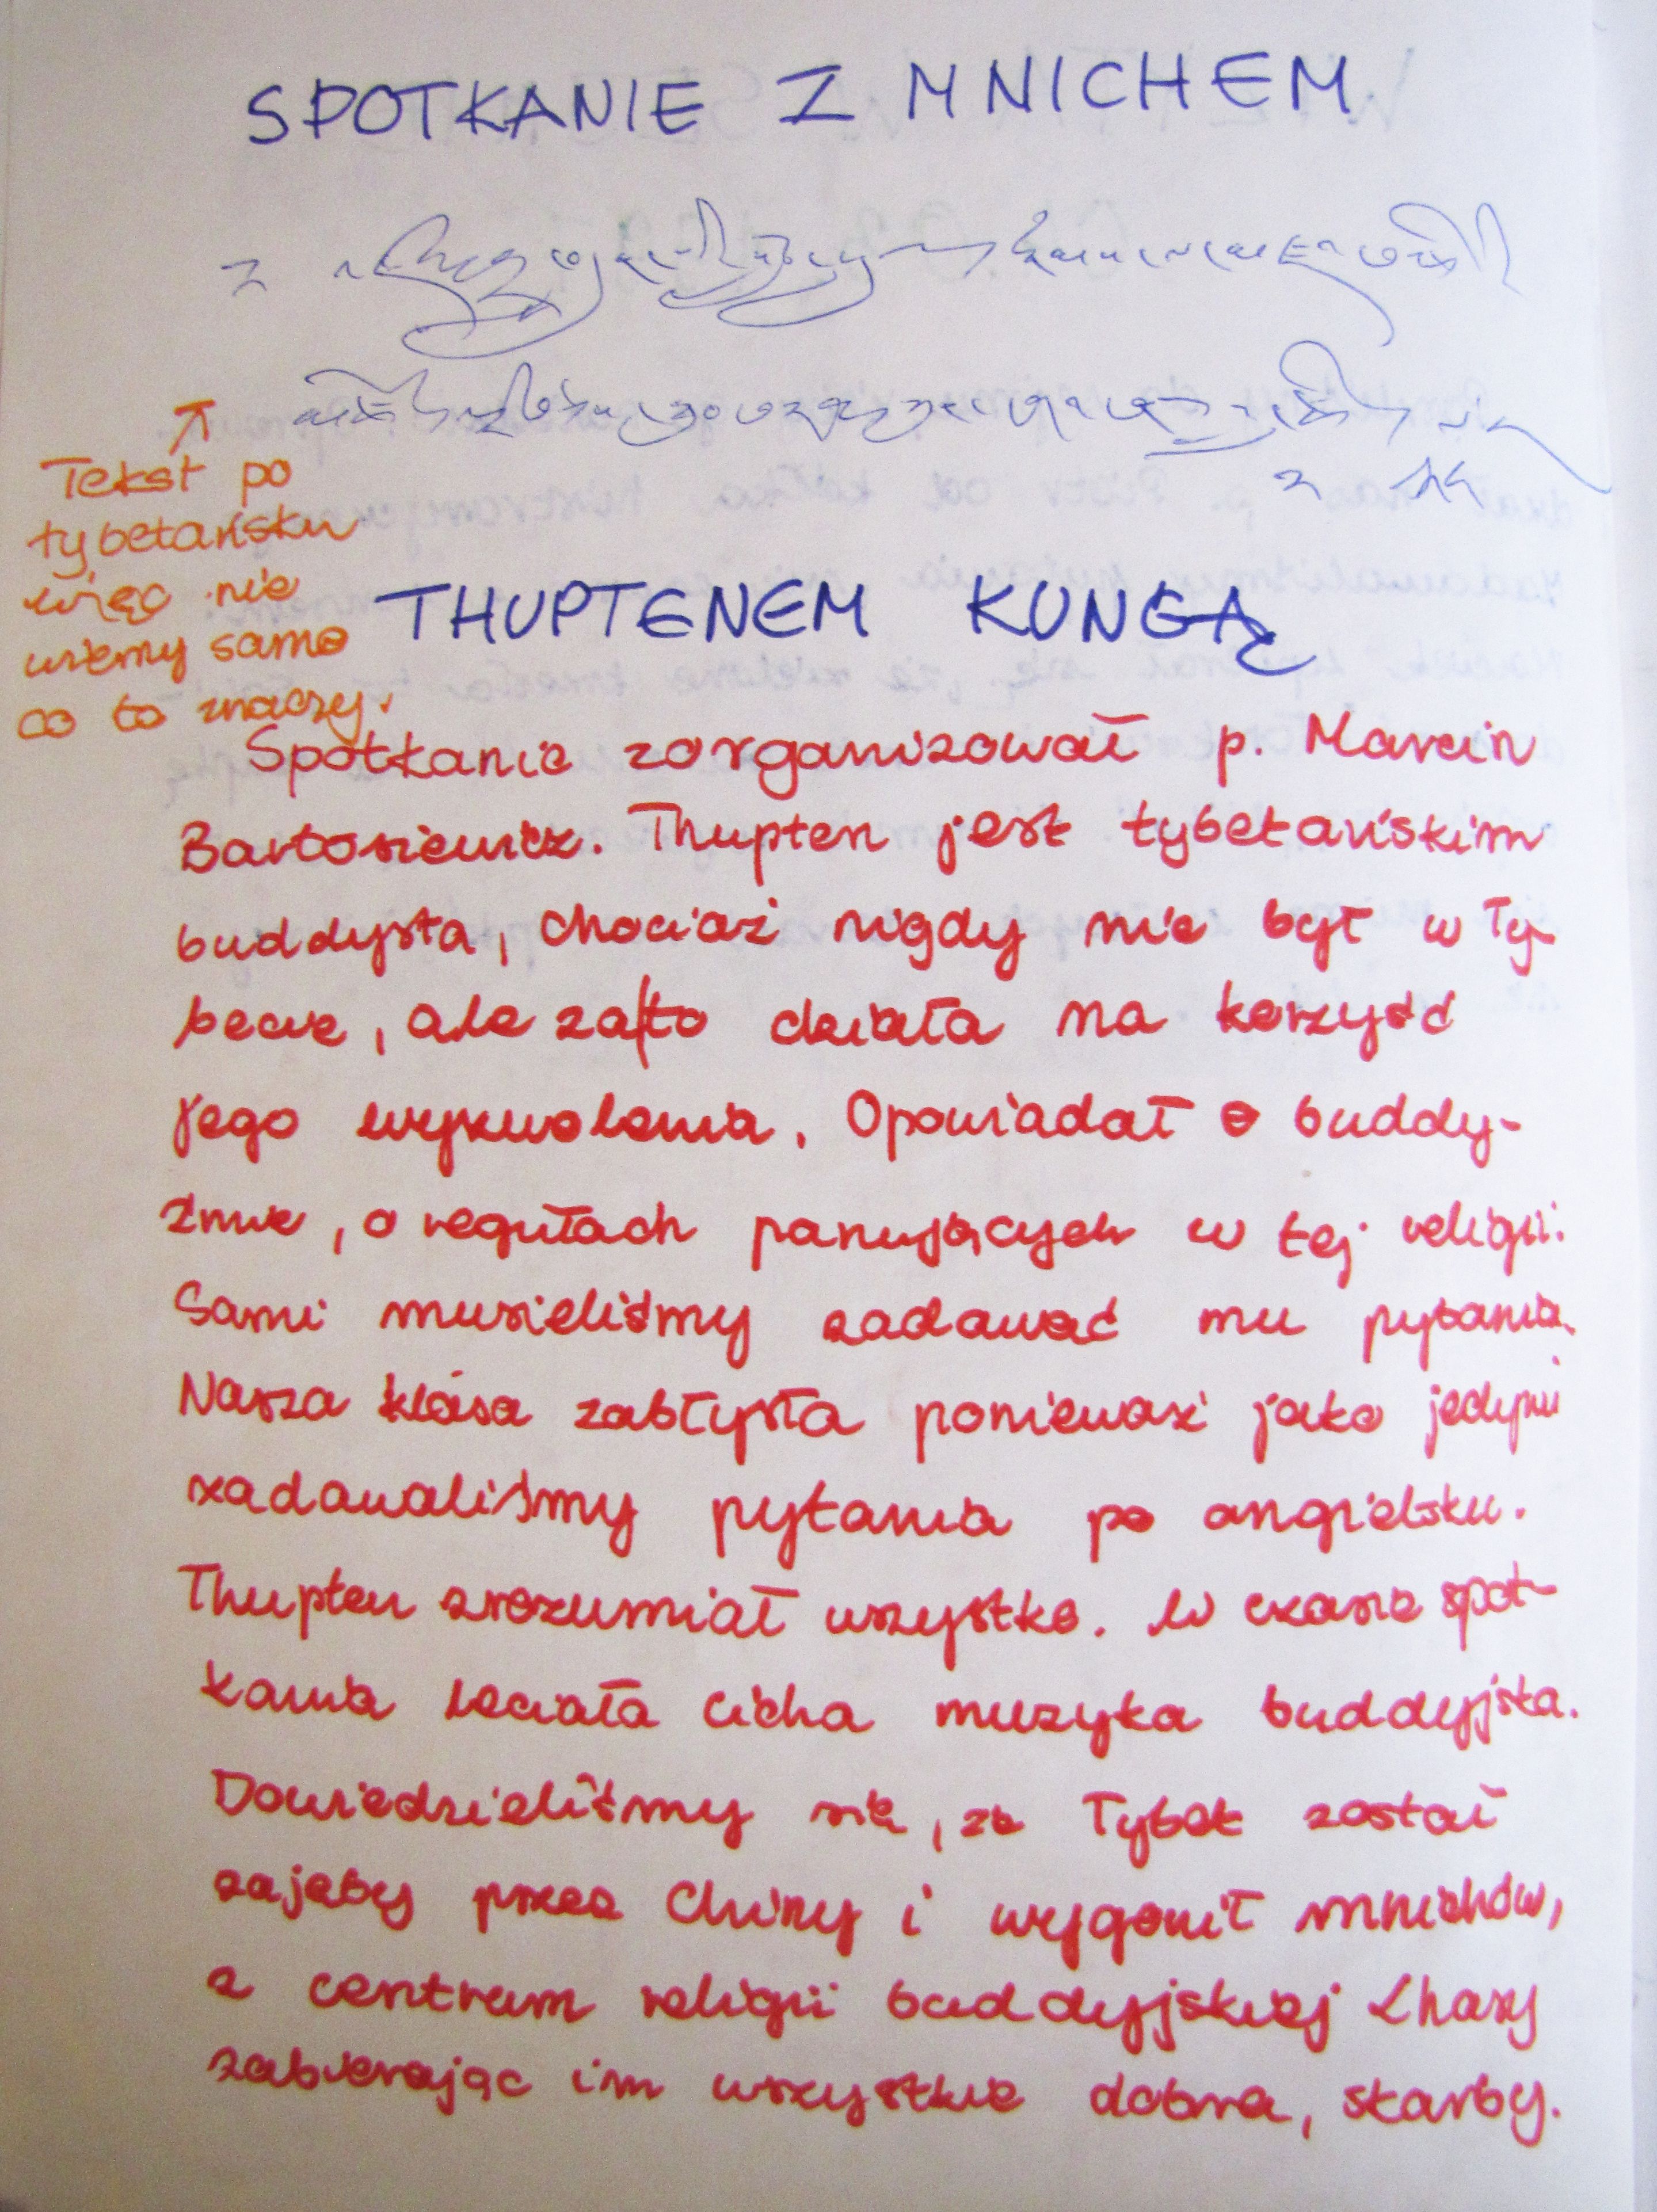 SPOTKANIE Z MNICHEM
Tekst po
tybetańsku
więc nie
wiemy samo
co to znaczy.
THUPTENEM KUNGĄ
Spotkanie zorganizował p. Marcin
Bartosiewicz. Thupten jest tybetańskim
buddystą, chociaż nigdy nie był w Ty-
becie, ale za|to działa na korzyść
jego wyzwolenia. Opowiadał o buddy-
zmie, o regułach panujących w tej religii.
Sami musieliśmy zadawać mu pytania.
Nasza klasa zabłysła ponieważ jako jedyni
zadawaliśmy pytania po angielsku.
Thupten zrozumiał wszystko. W czasie spot-
kania leciała cicha muzyka buddyjska.
Dowiedzieliśmy się, że Tybet został
zajęty przez Chiny i wygonił mnichów,
z centrum religii buddyjskiej Lhasy
zabierając im wszystkie dobra, skarby.